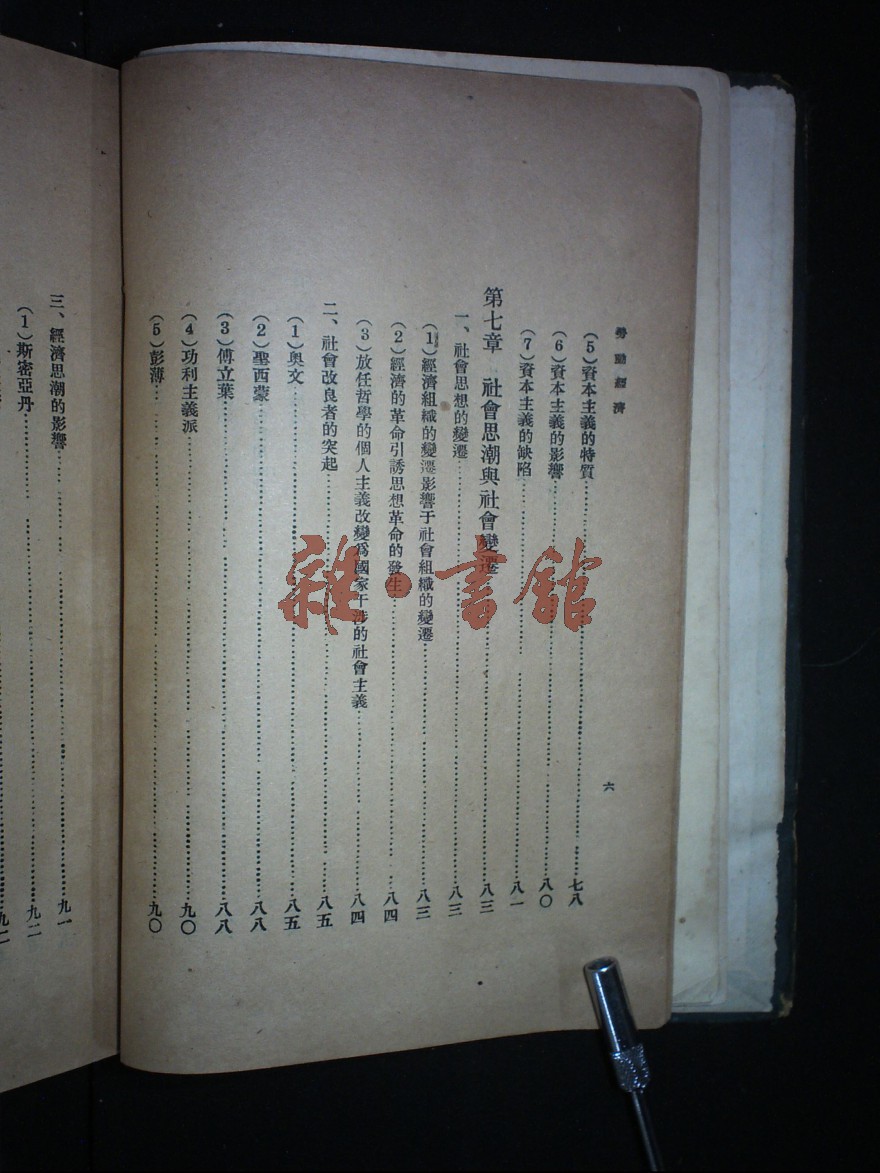 勞動經濟
六
(5)資本主義的特質……七八
(6)資本主義的影響……八〇
(7)資本主義的缺陷……八一
第七章 社會思潮與社會變遷……八三
一、社會思想的變遷……八三
(1)經濟組織的變遷影響于社會組織的變遷……八三
(2)經濟的革命引誘思想革命的發生……八四
(3)放任哲學的個人主義改變爲國家干涉的社會主義……八四
二、社會改良者的突起……八五
(1)奥文……八五
(2)聖西蒙……八八
(3)傅立葉……八八
(4)功利主義派……九〇
(5)彭薄……九〇
三、經濟思潮的影響……九一
(1)斯密亞丹……九二
雜·書館